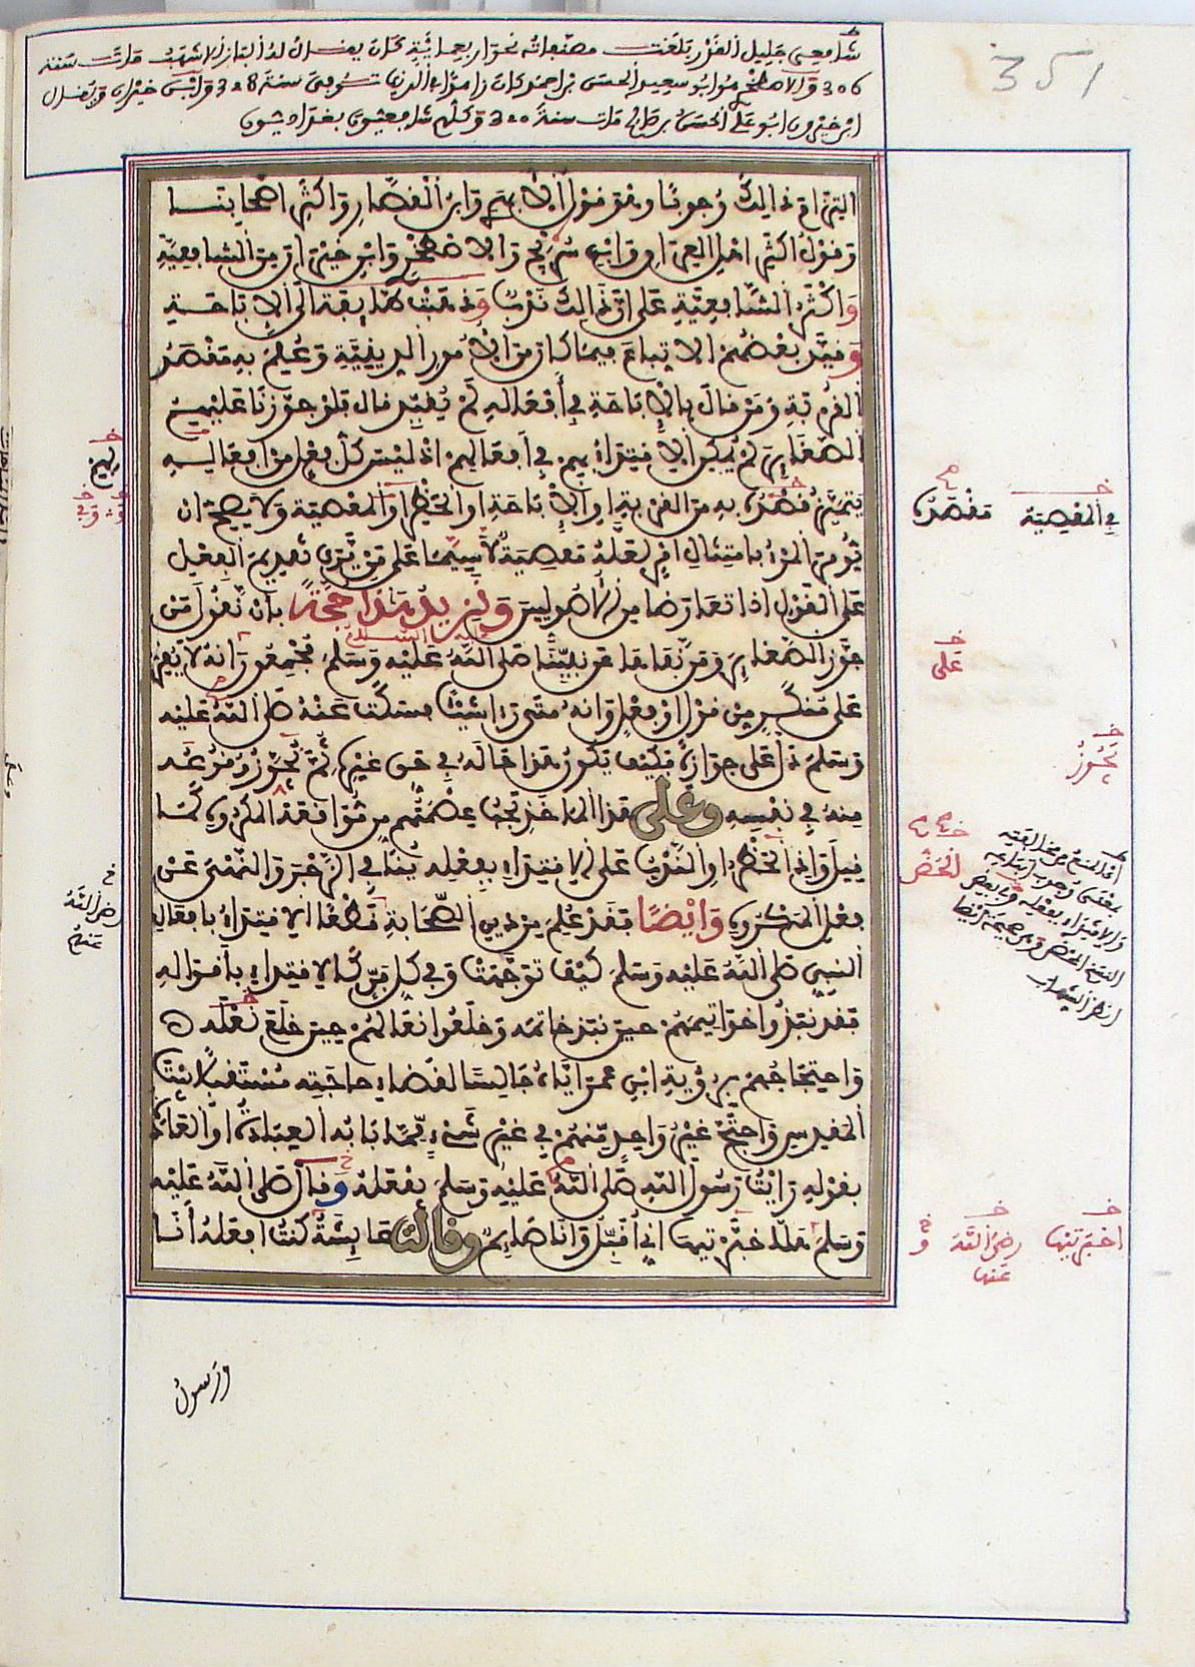 351
شافعي جليل القدر بلغت مصنفاته نحو اربعمائة كان يقال له الباز الاشهب مات سنة
306 والاصطخري هو ابو سعيد الحسن بن احمد كان زاهدا في الدنيا توفي سنة 328 وابن خيران ويقال
ابن خيرون ابو علي الحسن بن صالح مات سنة 320 وكلهم شافعيون بغداديون
التزام ذالك وجوبا وهو قول الابهري وابن القصار واكثر اصحابنا
وقول اكثر اهل العراق وابن سريج والاصطخري وابن خيران من الشافعية
واكثر الشافعية على ان ذالك ندب وذهبت طايفة الى الاباحة
وقيد بعضهم الاتباع فيما كان من الامور الدينية وعلم به مقصد
القربة ومن قال بالاباحة في افعاله لم يقيد قال فلو جوزنا عليهم
الصغاير لم يمكن الاقتداء بهم في افعالهم اذ ليس كل فعل من افعاله
يتميز مقصده به من القربة او الاباحة او الحظر او المعصية ولا يصح ان
يؤمر المرء بامتثال امر لعله معصية لا سيما على من يرى تقديم الفعل
على القول اذا تعارضا من الاصوليين ونزيد هذا حجة بان نقول من
جوز الصغاير ومن نفاها عن نبينا صلى الله عليه وسلم مجمعون انه لا يقر
على منكر من قول او فعل وانه متى رءا شيئا فسكت عنه صلى الله عليه
وسلم دل على جوازه فكيف يكون هذا حاله في حق غيره ثم يجوز وقوعه
منه في نفسه وعلى هذا الماخذ تجب عصمتهم من مواقعة المكروه كما
قيل واذ الحظر او الندب على الاقتداء بفعله ينافي الزجر والنهي عن
فعل المكروه وايضا فقد علم من دين الصحابة قطعا الاقتداء بافعال
النبي صلى الله عليه وسلم كيف توجهت وفي كل فن كالاقتداء باقواله
فقد نبذوا خواتيمهم حين نبذ خاتمه وخلعوا نعالهم حين خلع نعله
واحتجاجهم برؤية ابن عمر اياه جالسا لقضاء حاجته مستقبلا بيت
المقدس واحتج غير واحد منهم في غير شيء مما بابه العبادة او العادة
بقوله رايت رسول الله صلى الله عليه وسلم يفعله وقال صلى الله عليه
وسلم هلا خبرتيها اني اقبل وانا صايم وقالت عايشة كنت افعله انا
ورسول
في المعصية مقصده
على
يجوز
الحض
اخبرتيها رضي الله عنها
رضي الله
عنهم